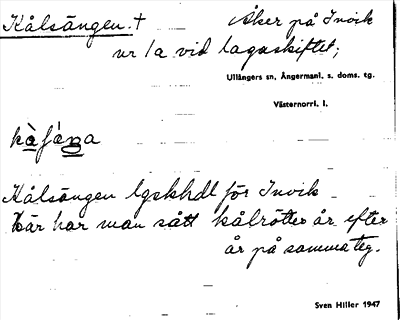 Kålsängen. † Åker på Invik
nr 1a vid lagaskiftet;
Ullångers sn, Ångermanl. s. doms. tg.
Västernorrl. l.
Kålsängen lgskhdl för Invik
Här har man sått kålrötter år efter
år på samma teg.
Sven Hiller 1947